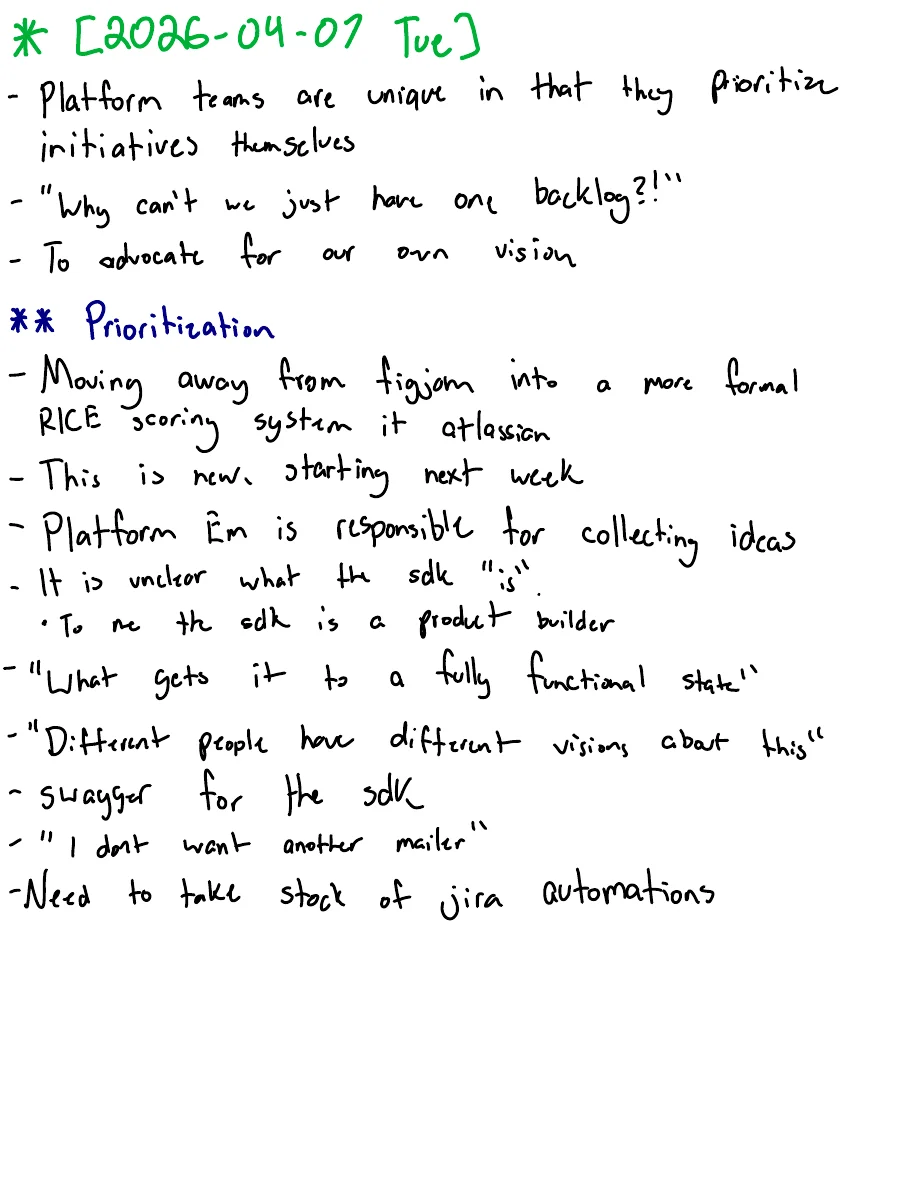 * [2026-04-07 Tue]
- Platform teams are unique in that they prioritize
initiatives themselves
- "Why can't we just have one backlog?!"
- To advocate for our own vision
** Prioritization
- Moving away from figjam into a more formal
RICE scoring system it atlassian
- This is new, starting next week
- Platform Em is responsible for collecting ideas
- It is unclear what the sdk "is".
• To me the sdk is a product builder
- "What gets it to a fully functional state"
- "Different people have different visions about this"
- swagger for the sdk
- "I dont want another mailer"
- Need to take stock of jira automations